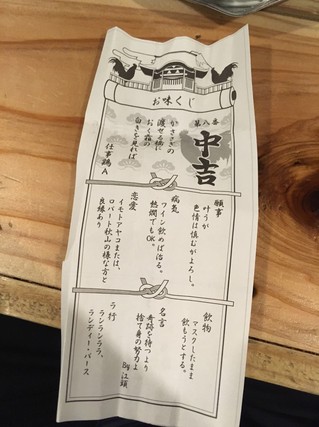 お味くじ
第八番
中吉
かささぎの
渡せる橋に
おく霜の
白きを見れば
仕事鶏A
願事
叶うが
色情は慎むがよろし。
病気
ワイン飲めば治る。
熱燗でもOK。
恋愛
イモトアヤコまたは、
ロバート秋山の様な方と
良縁あり
飲物
マスクしたまま
飲もうとする。
名言
奇跡を待つより
捨て身の努力よ
By 江頭
ラ行
ランランララ、
ランディー・バース